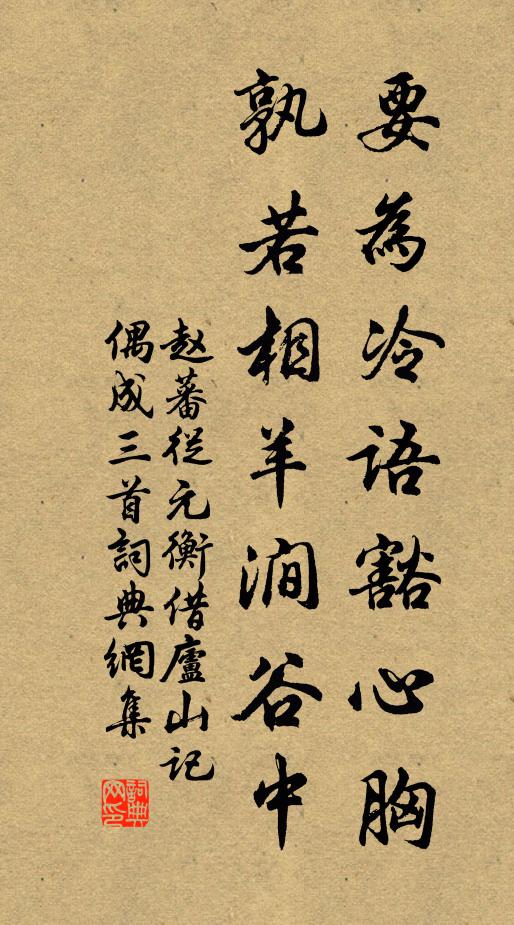 要為冷語豁心胸
孰若相羊澗谷中
赵蕃從元衡借廬山记
偶成三首詞典網集
詞典
网印